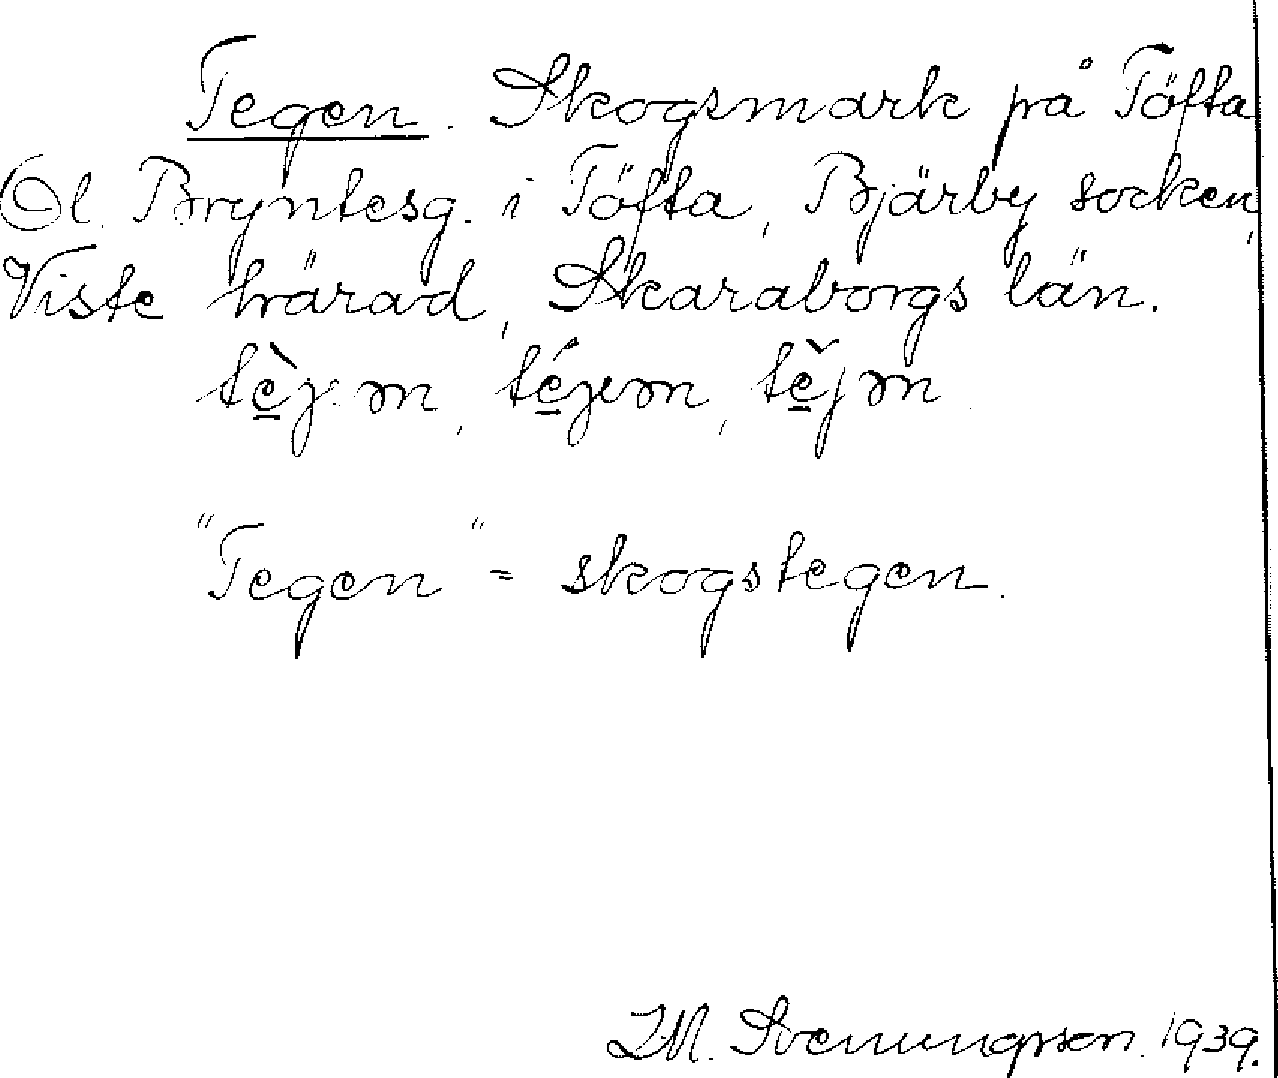 Tegen. Skogsmark på Töfta
Ol. Bryntesg. i Töfta, Bjärby socken,
Viste härad, Skaraborgs län.
"Tegen" = skogstegen.
Svenungsson. 1939.